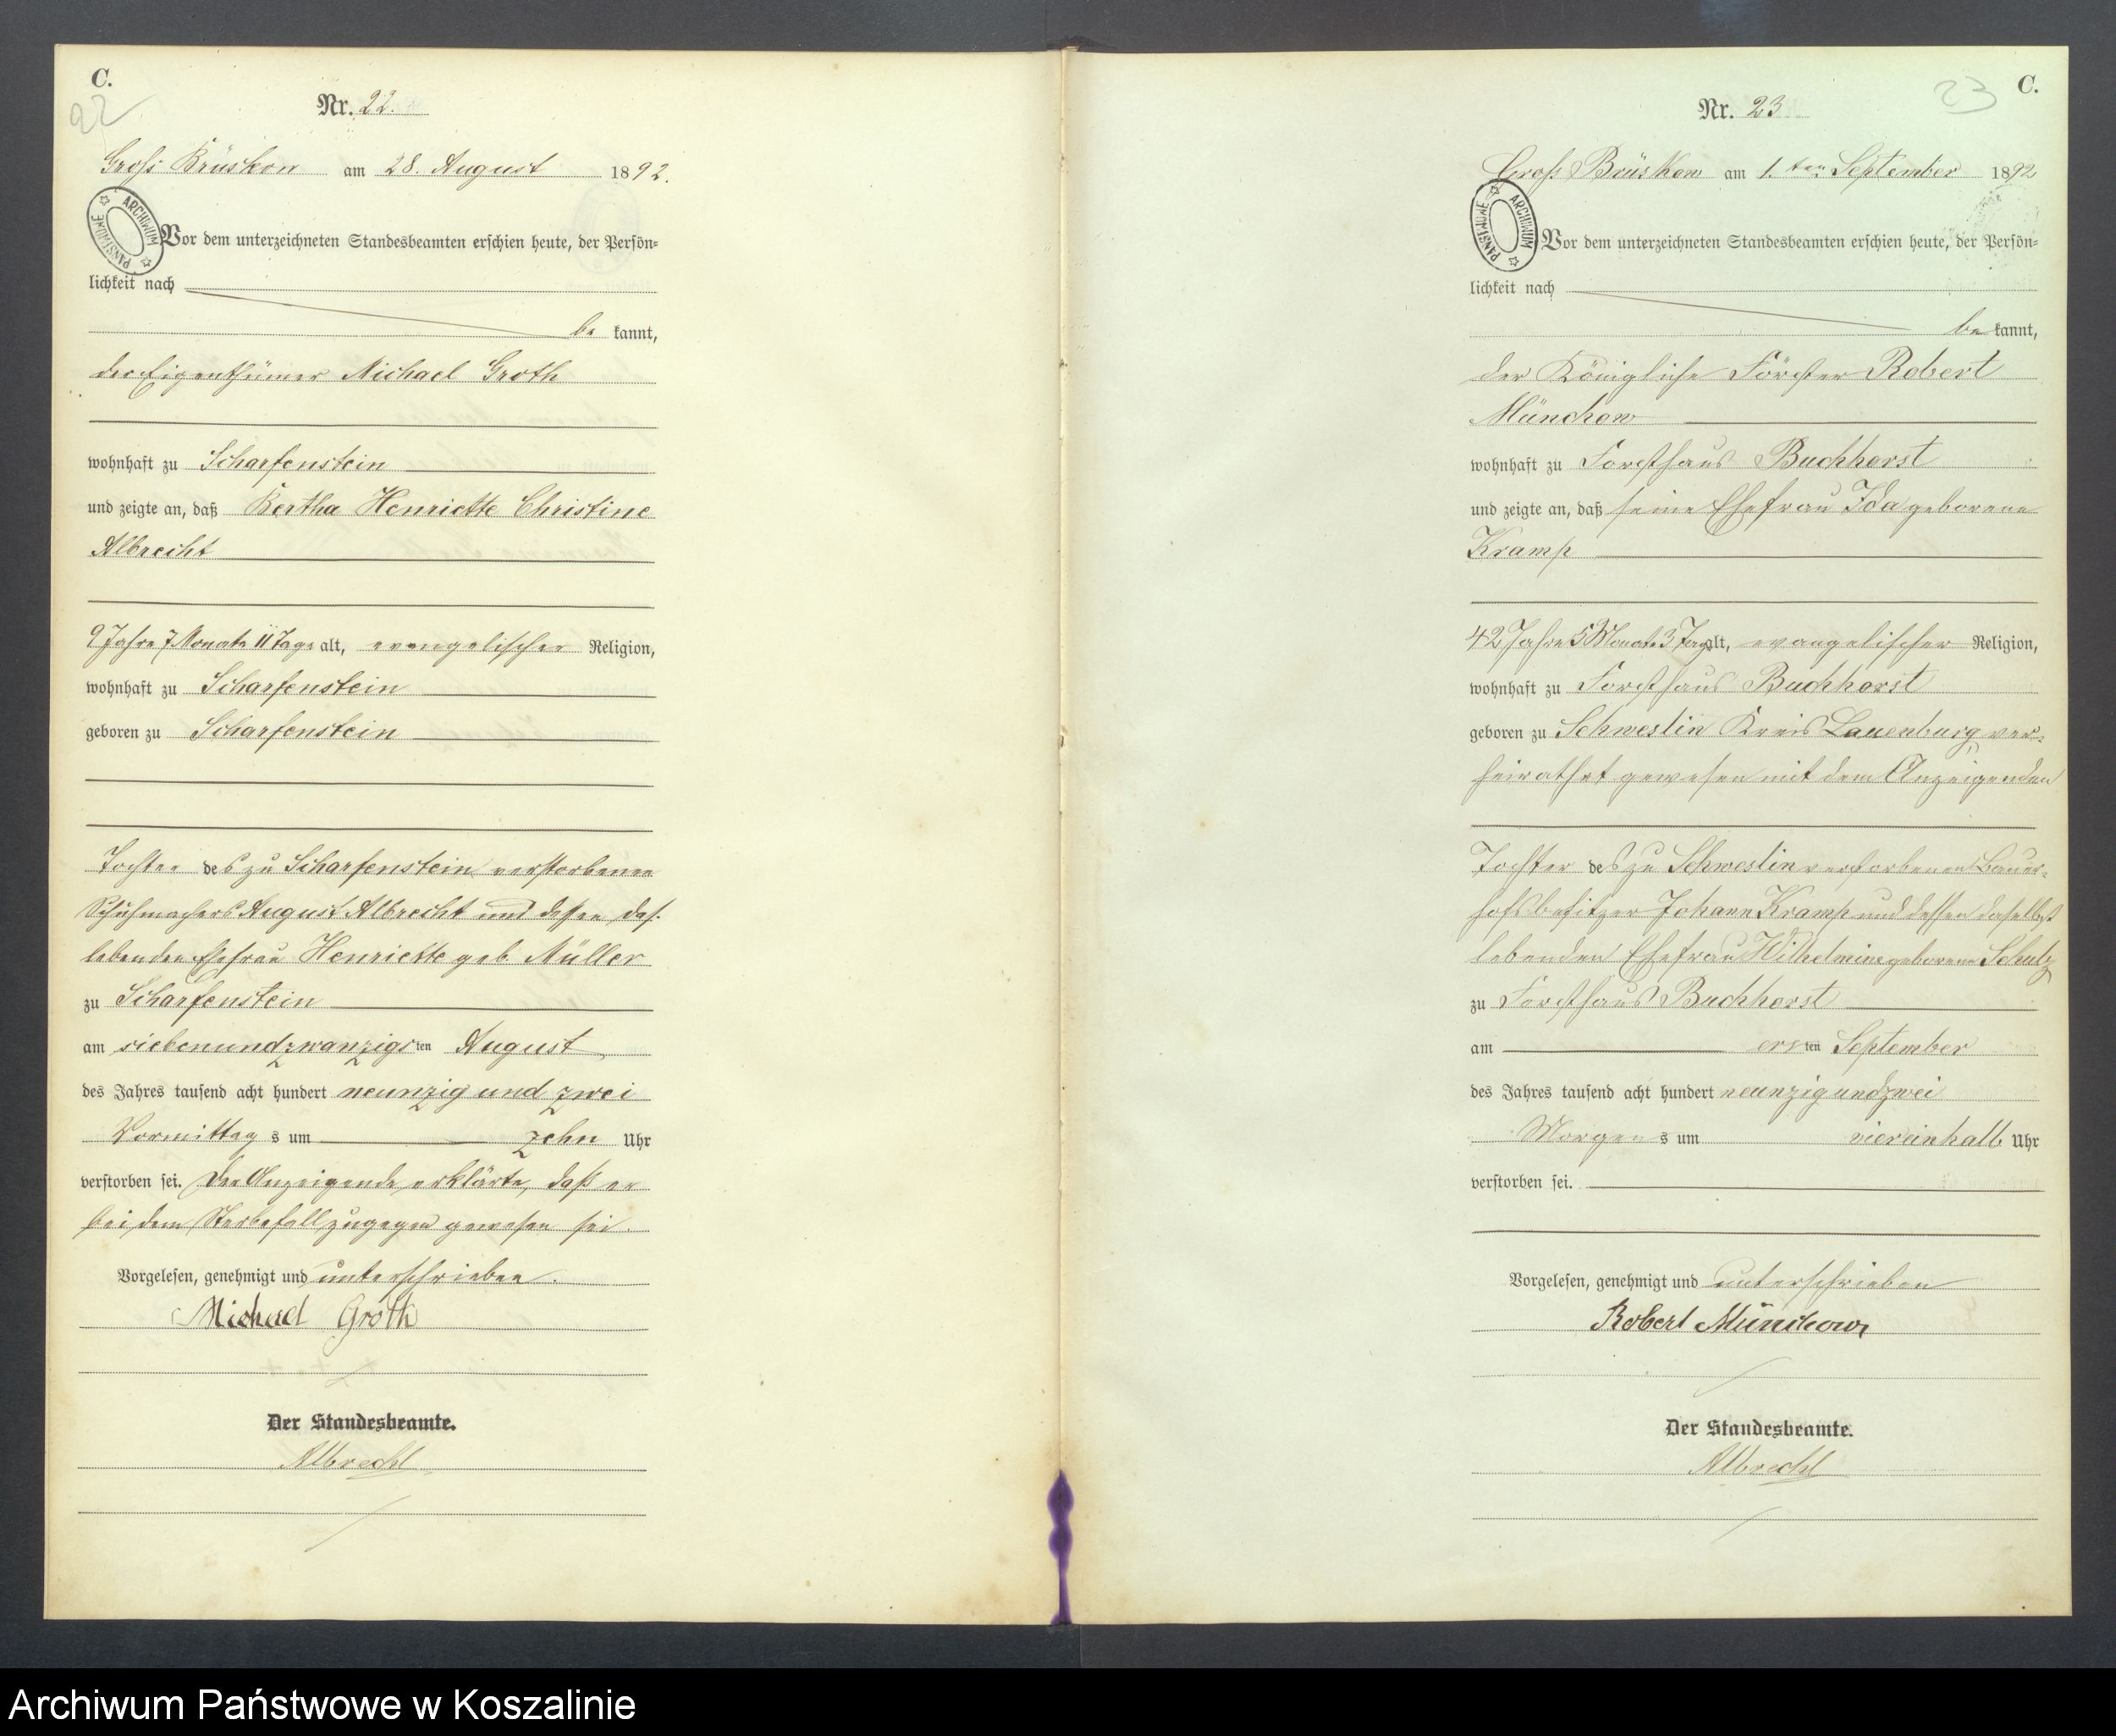 C.
22
Nr. 22.
Groß Brüskow am 28. August 1892.
ARCHIWUM PAŃSTWOWE
Vor dem unterzeichneten Standesbeamten erschien heute, der Persön=
lichkeit nach
be kannt,
der Eigenthümer Michael Groth
wohnhaft zu Scharfenstein
und zeigte an, daß Bertha Henriette Christine
Albrecht
9 Jahre 7 Monate 11 Tage alt, evangelischer Religion,
wohnhaft zu Scharfenstein
geboren zu Scharfenstein
Tochter des zu Scharfenstein verstorbenen
Schuhmachers August Albrecht und dessen das.
lebenden Ehefrau Henriette geb. Müller
zu Scharfenstein
am siebenundzwanzigsten August
des Jahres tausend acht hundert neunzig und zwei
Vormittags um zehn Uhr
verstorben sei. Der Anzeigende erklärte, daß er
bei dem Sterbefall zugegen gewesen sei.
Vorgelesen, genehmigt und unterschrieben.
Michael Groth
Der Standesbeamte.
Albrecht
23 C.
Nr. 23
Groß Brüskow am 1. ten September 1892
ARCHIWUM PAŃSTWOWE
Vor dem unterzeichneten Standesbeamten erschien heute, der Persön=
lichkeit nach
be kannt,
der Königliche Förster Robert
Münchow
wohnhaft zu Forsthaus Buchhorst
und zeigte an, daß seine Ehefrau Ida geborene
Kramp
42 Jahre 5 Monate 3 Tage alt, evangelischer Religion,
wohnhaft zu Forsthaus Buchhorst
geboren zu Schweslin Kreis Lauenburg ver=
heirathet gewesen mit dem Anzeigenden
Tochter des zu Schweslin verstorbenen Bauer=
hofsbesitzer Johann Kramp und dessen daselbst
lebenden Ehefrau Wilhelmine geborene Schulz
zu Forsthaus Buchhorst
am ersten September
des Jahres tausend acht hundert neunzig und zwei
Morgens um viereinhalb Uhr
verstorben sei.
Vorgelesen, genehmigt und unterschrieben
Robert Münchow
Der Standesbeamte.
Albrecht
Archiwum Państwowe w Koszalinie